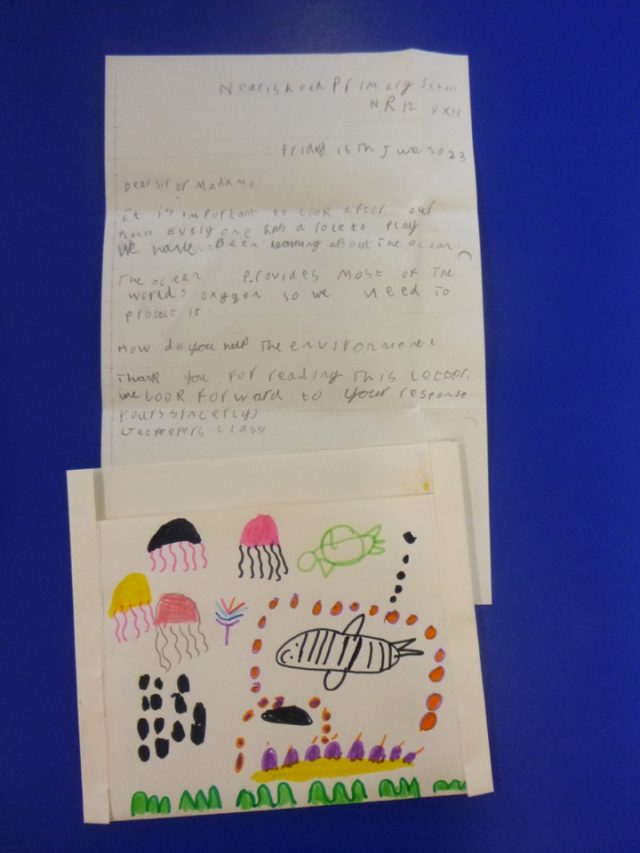 Neatishead Primary School
NR12 8XN
Friday 16th June 2023
Dear sir or Madam,
It is important to look after our
every one has a role to play
We have been learning about the ocean.
The ocean provides most of the
worlds oxygen so we need to
protect it.
How do you help the environment
Thank you for reading this letter.
we look forward to your response
Yours sincerly
class